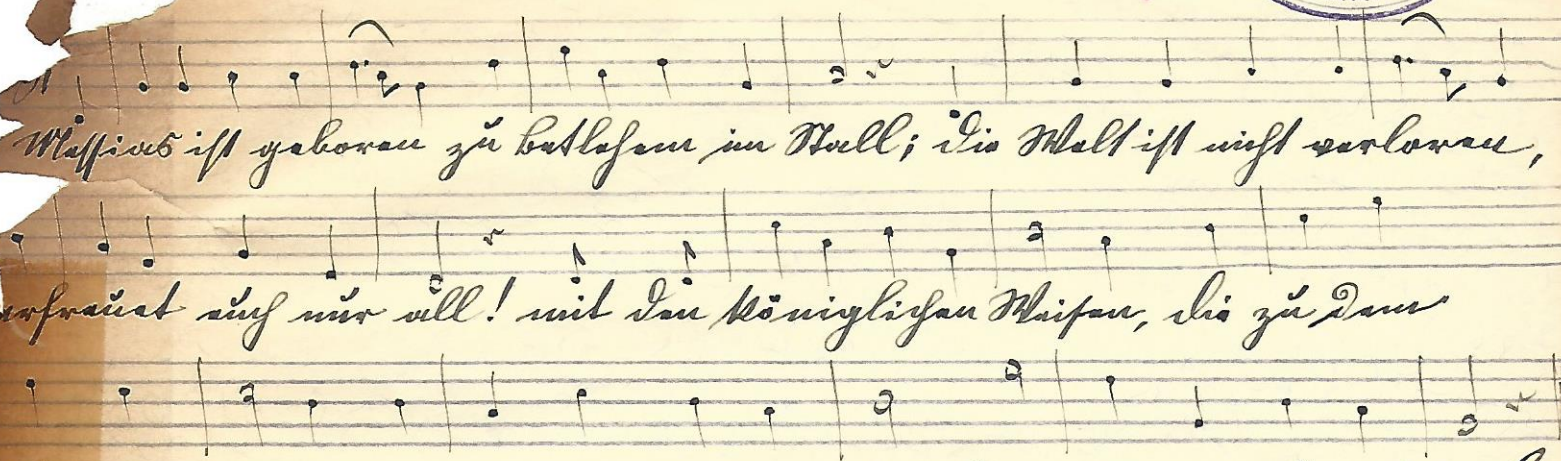 Messias ist geboren zu Betlehem im Stall; die Welt ist nicht verloren,
erfreuet euch nur all! mit den königlichen Weisen, die zu dem